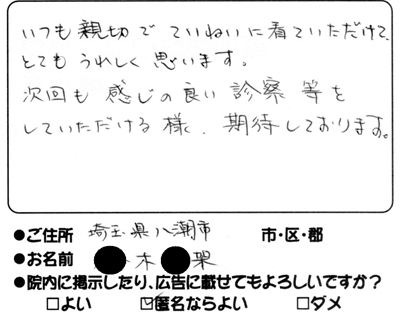 いつも親切で ていねいに看ていただけて、
とてもうれしく思います。
次回も感じの良い診察等を
していただける様、期待しております。
●ご住所 埼玉県八潮市 市・区・郡
●お名前 ●木●果
●院内に掲示したり、広告に載せてもよろしいですか?
□よい ☑匿名ならよい □ダメ